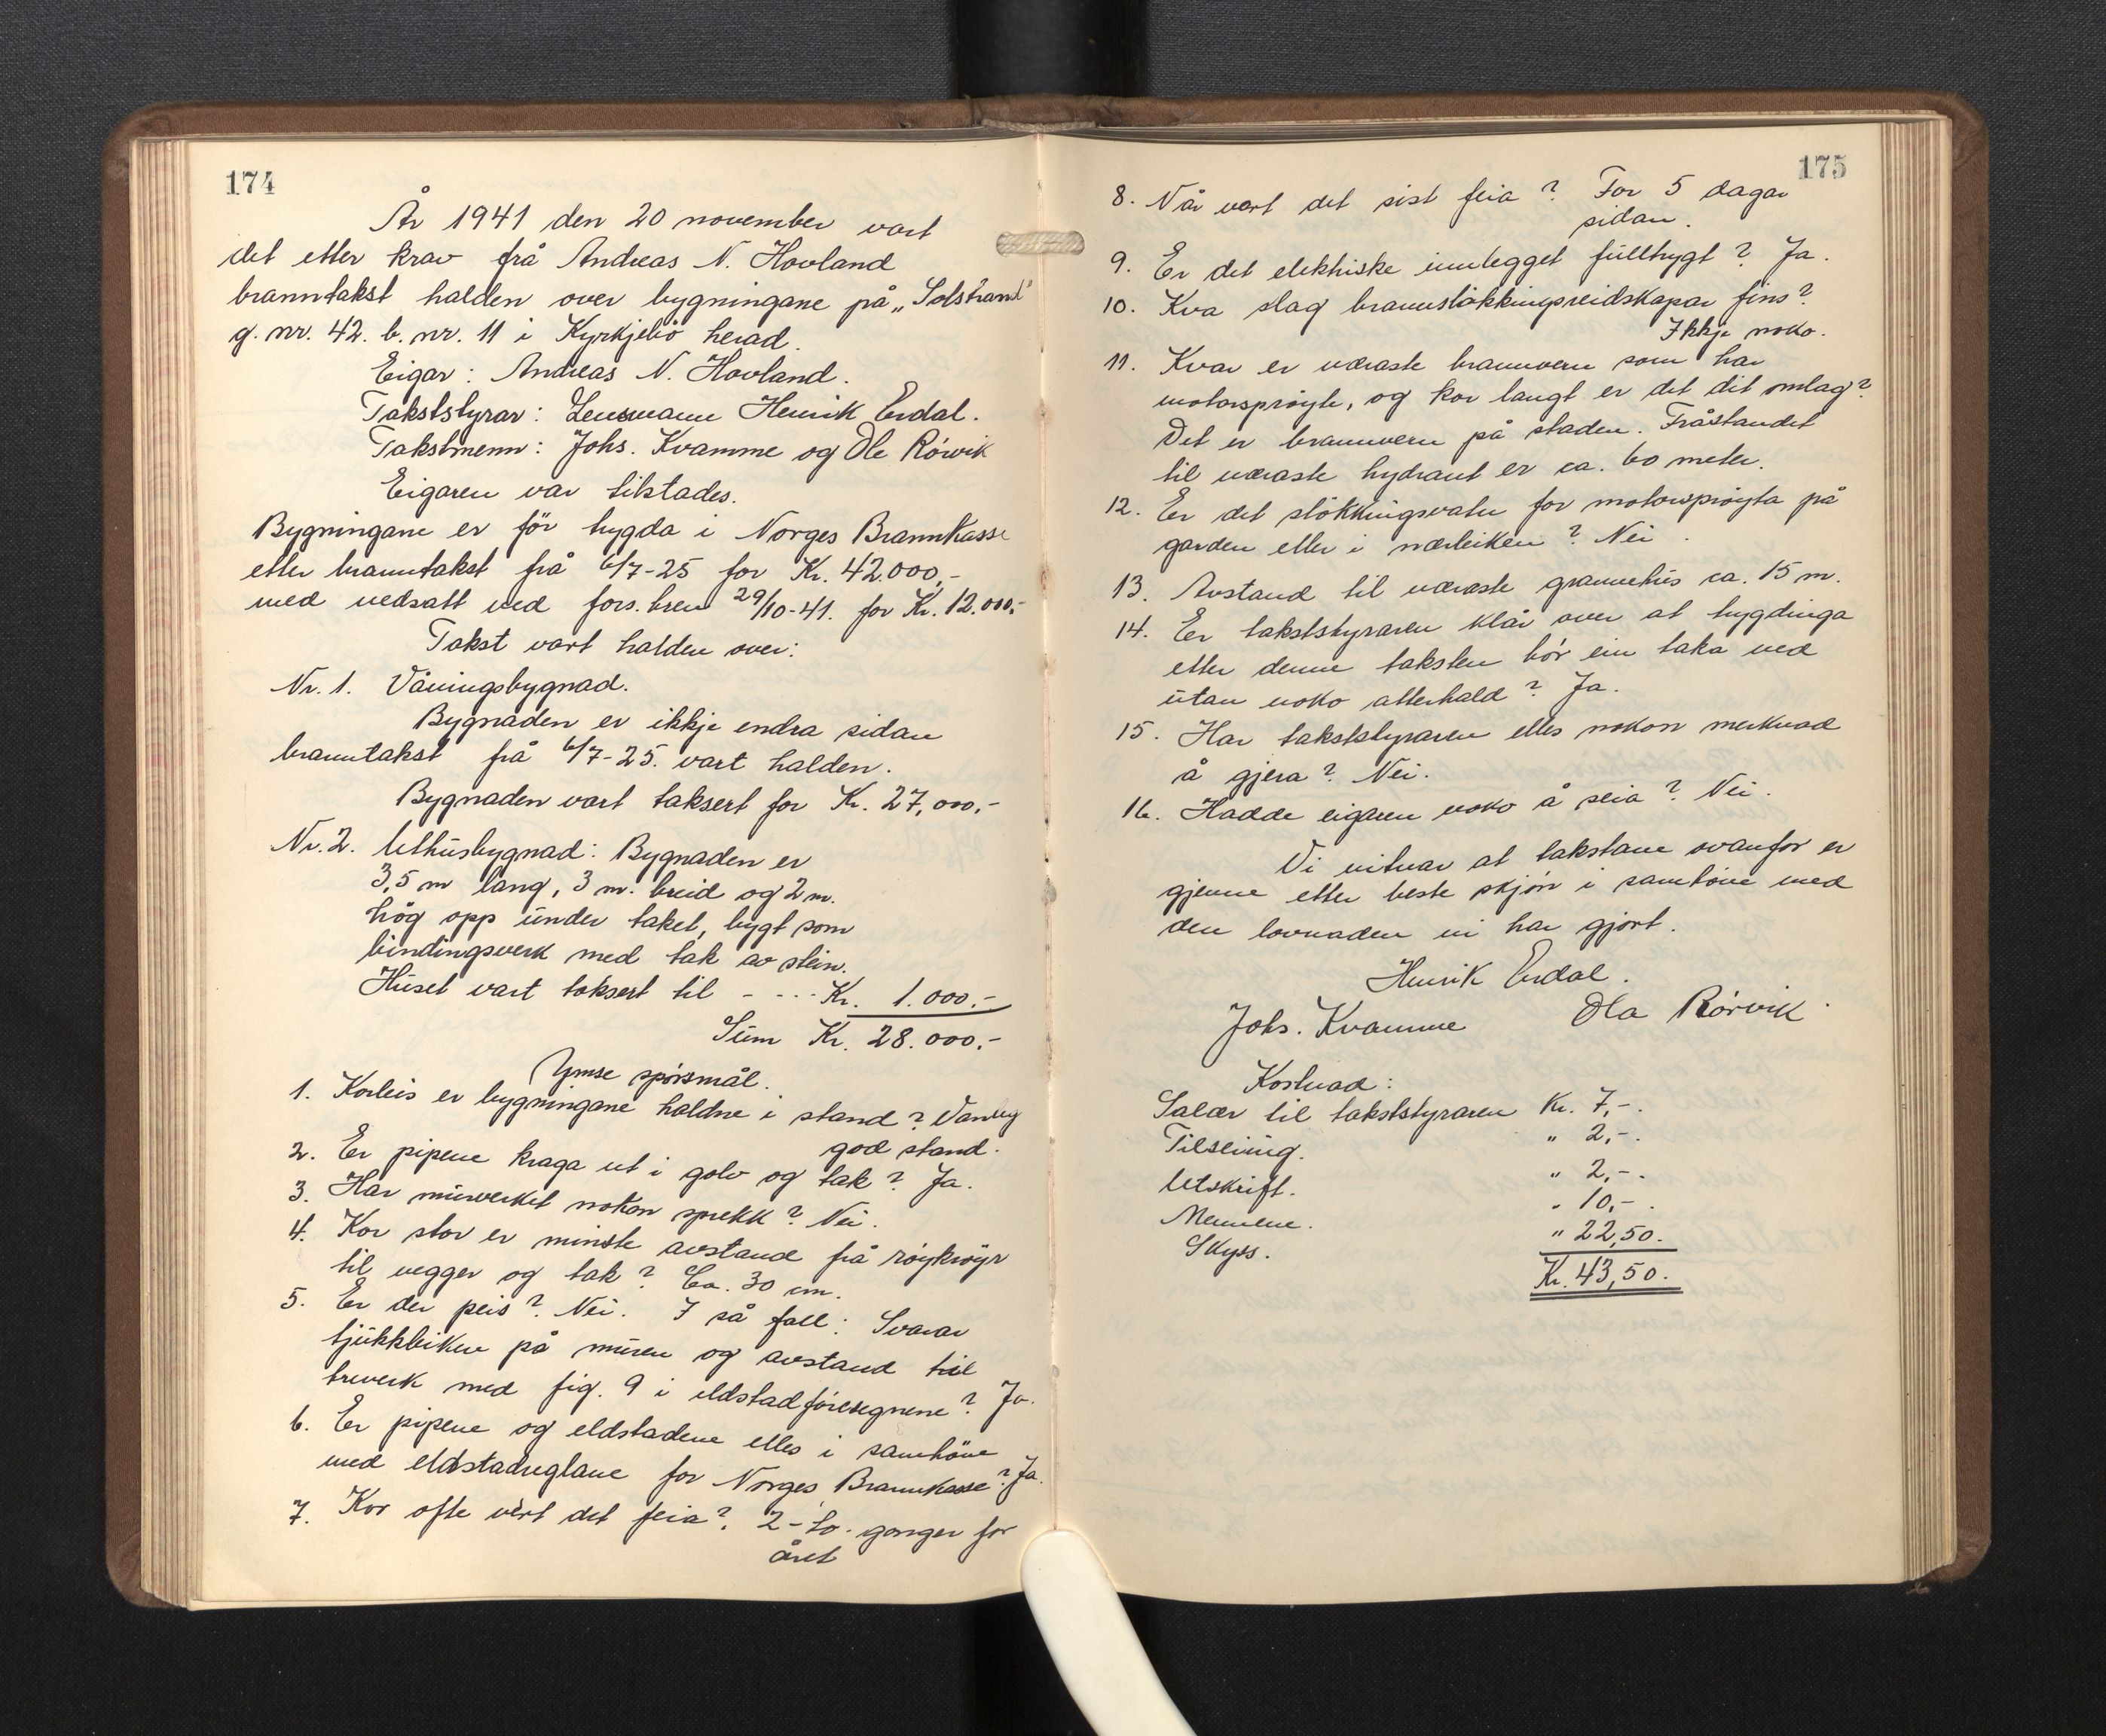 174
År 1941 den 20 november vart
det etter krav frå Andreas N. Hovland
branntakst halden over bygningane på „Solstrand"
g. nr. 42. b. nr. 11 i Kyrkjebö herad.
Eigar: Andreas N. Hovland.
Takststyrar: Lensmann Henrik Erdal.
Takstmenn: Johs. Kvamme og Ole Rórvik
Eigaren var tilstades.
Bygningane er för trygda i Norges Brannkasse
etter branntakst frå 6/7-25 for Kr. 42.000,-
med nedsatt ved fors. brev 29/10-41. for Kr. 12.000,-
Takst vart halden over:
Nr. 1. Våningsbygnad.
Bygnaden er ikkje endra sidan
branntakst frå 6/7-25. vart halden.
Bygnaden vart taksert for Kr. 27,000,-
Nr. 2. Uthusbygnad: Bygnaden er
3,5 m lang, 3 m. breid og 2 m.
hög opp under taket, bygt som
bindingsverk med tak av stein.
Huset vart taksert til - - - - Kr. 1.000.-
Sum Kr. 28.000.-
Ymse spörsmål.
1. Korleis er bygningane haldne i stand? Vanleg
god stand.
2. Er pipene kraga ut i golv og tak? Ja.
3. Har murverket nokon sprekk? Nei.
4. Kor stor er minste avstand frå röykröyr
til vegger og tak? Ca. 30 cm.
5. Er der peis? Nei. I så fall: Svarar
tjukkleiken på muren og avstand til
treverk med fig. 9 i eldstadföresegnene? Ja.
6. Er pipene og eldstadene elles i samhöve
med eldstadreglane for Norges Brannkasse? Ja.
7. Kor ofte vert det feia? 2-to- gonger for
året
175
8. Når vart det sist feia? For 5 dagar
sidan.
9. Er det elektriske innlegget fulltrygt? Ja.
10. Kva slag brannslökkingsreidskapar fins?
Ikkje noko.
11. Kvar er næraste brannvern som har
motorspröyte, og kor langt er det dit omlag?
Det er brannvern på staden. Fråstandet
til næraste hydrant er ca. 60 meter.
12. Er det slökkingsvatn for motorspröyta på
garden eller i nærleiken? Nei.
13. Avstand til næraste grannehus ca. 15 m.
14. Er takststyraren klår over at trygdinga
etter denne taksten bör ein taka ved
utan noko atterhald? Ja.
15. Har takststyraren elles nokon merknad
å gjera? Nei.
16. Hadde eigaren noko å seia? Nei.
Vi vitnar at takstane ovanfor er
gjevne etter beste skjön i samhöve med
den lovnaden vi har gjort.
Henrik Erdal.
Johs. Kvamme Ola Rórvik.
Kostnad:
Salær til takststyraren Kr. 7,-.
Tilseiing. " 2,-.
Utskrift. " 2,-.
Mennene. " 10,-.
Skyss. " 22,50.
Kr. 43,50.